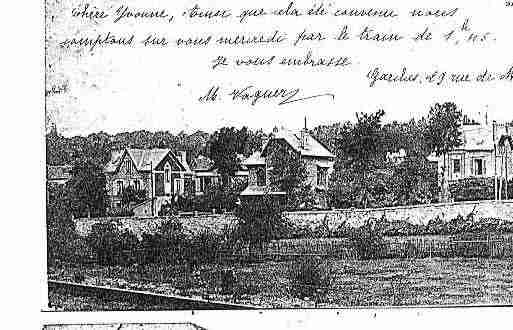 Chère Yvonne, Ainsi que cela été convenu nous
comptons sur vous mercredi par le train de 1h 45.
Je vous embrasse.
29 rue de
M. Vaguer